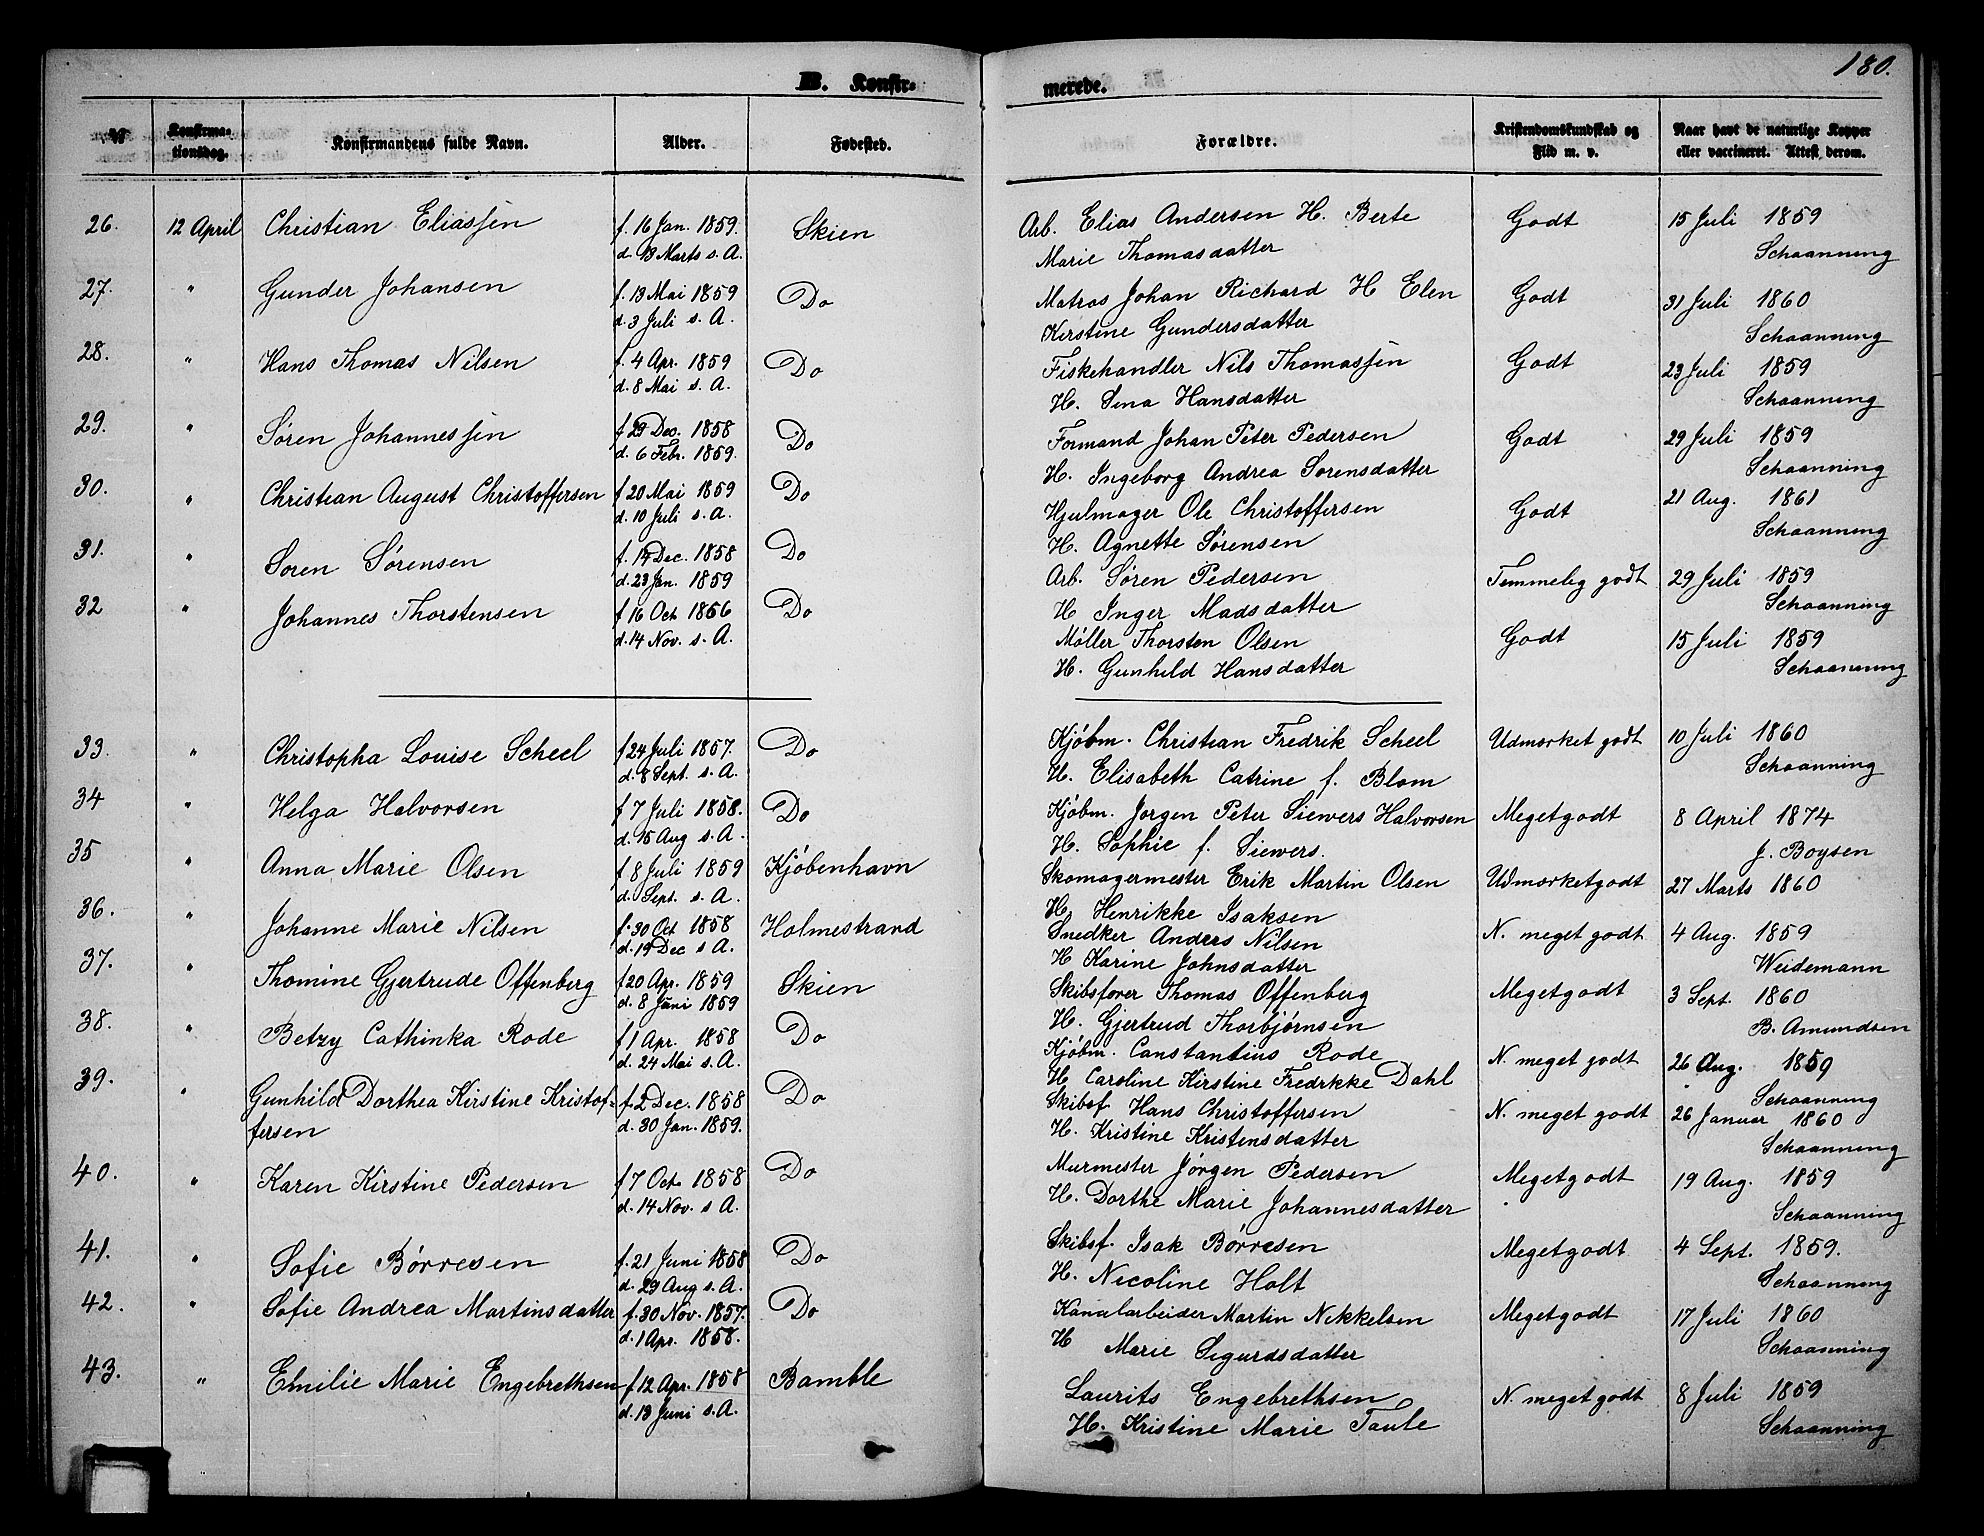 180.
B. Konfir-
merede.
№ Konfirma-
tionsdag. Konfirmandens fulde Navn. Alder. Fødested. Forældre. Kristendomskundskab og
Flid m. v. Naar havt de naturlige Kopper
eller vaccineret. Attest derom.
26. 12 April Christian Eliassen f. 16 Jan. 1859. Skien Arb. Elias Andersen H. Berte Godt 15 Juli 1859
d. 13 Marts s. A. Marie Thomasdatter Schaanning
27. " Gunder Johansen f. 13 Mai 1859 Do Matros Johan Richard H Elen Godt 31 Juli 1860
d. 3 Juli s. A. Kirstine Gundersdatter Schaanning
28. " Hans Thomas Nilsen f. 4 Apr. 1859 Do Fiskehandler Nils Thomassen Godt 23 Juli 1859
d. 8 Mai s. A. H. Sina Hansdatter Schaanning
29. " Søren Johannessen f 29 Dec. 1858 Do Formand Johan Peter Pedersen Godt 29 Juli 1859
d. 6 Febr. 1859. H. Ingeborg Andrea Sorensdatter Schaanning
30. " Christian August Christoffersen f 20 Mai 1859 Do Hjulmager Ole Christoffersen Godt 21 Aug. 1861
d. 10 Juli s. A. H. Agnette Sørensen Schaanning
31. " Soren Sørensen f. 14 Dec. 1858 Do Arb. Søren Pedersen Temmelig godt 29 Juli 1859
d. 23 Jan. 1859 H Inger Madsdatter Schaanning
32 " Johannes Thorstensen f 16 Oct 1856 Do Møller Thorsten Olsen Godt 15 Juli 1859
d. 14 Nov. s. A. H. Gunhild Hansdatter Schaanning
33. " Christopha Louise Scheel f 24 Juli 1857. Do Kjøbm. Christian Fredrik Scheel Udmærket godt 10 Juli 1860
d. 8 Sept. s. A. H. Elisabeth Catrine f. Blom Schaanning
34 " Helga Halvorsen f 7 Juli 1858. Do Kjøbm. Jorgen Peter Siewers Halvorsen Megetgodt 8 April 1874
d. 15 Aug s. A. H. Sophie f. Siewers. J. Boysen
35 " Anna Marie Olsen f 8 Juli 1859 Kjøbenhavn Skomagermester Erik Martin Olsen Udmærketgodt 27 Marts 1860
d. Sept. s. A. H. Henrikke Isaksen
36. " Johanne Marie Nilsen f. 30 Oct 1858 Holmestrand Snedker Anders Nilsen N. meget godt 4 Aug. 1859
d. 19 Dec s A. H Karine Johnsdatter Weidemann
37. " Thomine Gjertrude Offenberg f 20 Apr. 1859 Skien Skibsforer Thomas Offenberg Megetgodt 3 Sept. 1860
d. 8 Juni 1859 H. Gjertrud Thorbjørnsen B. Amundsen
38. " Betzy Cathinka Rode f 1 Apr. 1858 Do Kjøbm. Constantius Rode N. meget godt 26 Aug. 1859
d. 24 Mai s. A. H Caroline Kirstine Fredrikke Dahl Schaanning
39. " Gunhild Dorthea Kirstine Kristof- f. 2 Dec. 1858 Do Skibsf Hans Christoffersen N. meget godt 26 Januar 1860
fersen d. 30 Jan. 1859. H. Kristine Kristensdatter Schaanning
40. " Karen Kirstine Pedersen f 7 Oct. 1858 Do Murmester Jørgen Pedersen Megetgodt 19 Aug. 1859
d. 14 Nov. s A. H. Dorthe Marie Johannesdatter Schaanning
41. " Sofie Børresen f. 21 Juni 1858 Do Skibsf. Isak Børresen Megetgodt 4 Sept. 1859.
d. 29 Aug s. A. H. Nicoline Holt Schaanning
42. " Sofie Andrea Martinsdatter f. 30 Nov. 1857. Do Kanalarbeider Martin Nikkelsen Megetgodt 17 Juli 1860
d. 1 Apr. 1858. H Marie Sigurdsdatter Schaanning
43. " Emilie Marie Engebrethsen f 12 Apr. 1858 Bamble Laurits Engebrethsen N. meget godt 8 Juli 1859
d. 13 Juni s. A. H. Kristine Marie Taule Schaanning